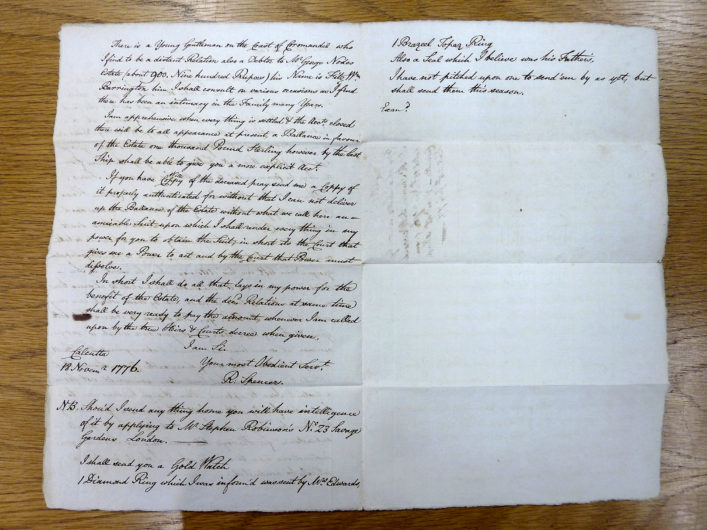 There is a Young Gentleman on the Coast of Cromandel who
I find to be a distant Relation also a Debtor to Mr George Nodes
Estate (about 900. Nine hundred Rupees) his Name is Fitz Wm
Barrington him I shall consult on various occasions as I find
there has been an intimacy in the Family many Years.
I am apprehensive when every thing is settled & the Accts closed
there will be to all appearance at present, a Ballance in favour
of the Estate one thousand Pound Sterling however by the last
Ship shall be able to give you a more explicit Acct.
If you have Coppy of the demand pray send me a Coppy of
it properly authenticated for without that I can not deliver
up the Ballance of the Estate without what we call here an
amicable Suit upon which I shall render every thing in my
power for you to obtain the Suit, in short its the Court that
gives me a Power to act and by the Court that Power must
dissolve.
In short I shall do all that lays in my power for the
benefit of the Estate, and the Relations at same time
shall be very ready to pay the amount, whenever I am called
upon by the true Heirs & Courts decree when given,
I am Sir
Your most Obedient Servt.
Calcutta
18 Novemr 1776
R. Spencer.
NB Should I send any thing home you will have intelligence
of it by applying to Mr Stephen Robinson's No. 23 Savage
Gardens London.
I shall send you a Gold Watch
1 Diamond Ring which I was inform'd was sent by Mrs Edwards
1 Brazeel Topaz Ring
Also a Seal which I believe was his Father's.
I have not pitched upon one to send 'em by as yet, but
shall send them this season.
Examd.